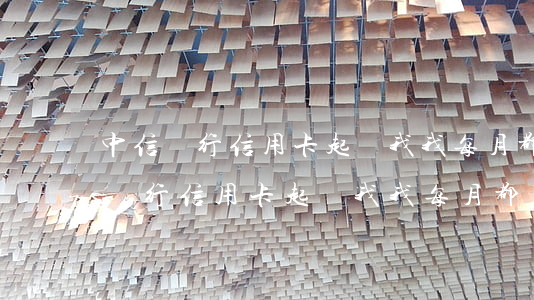 中信 行信用卡起 我我每月都
行信用卡起 我我每月都